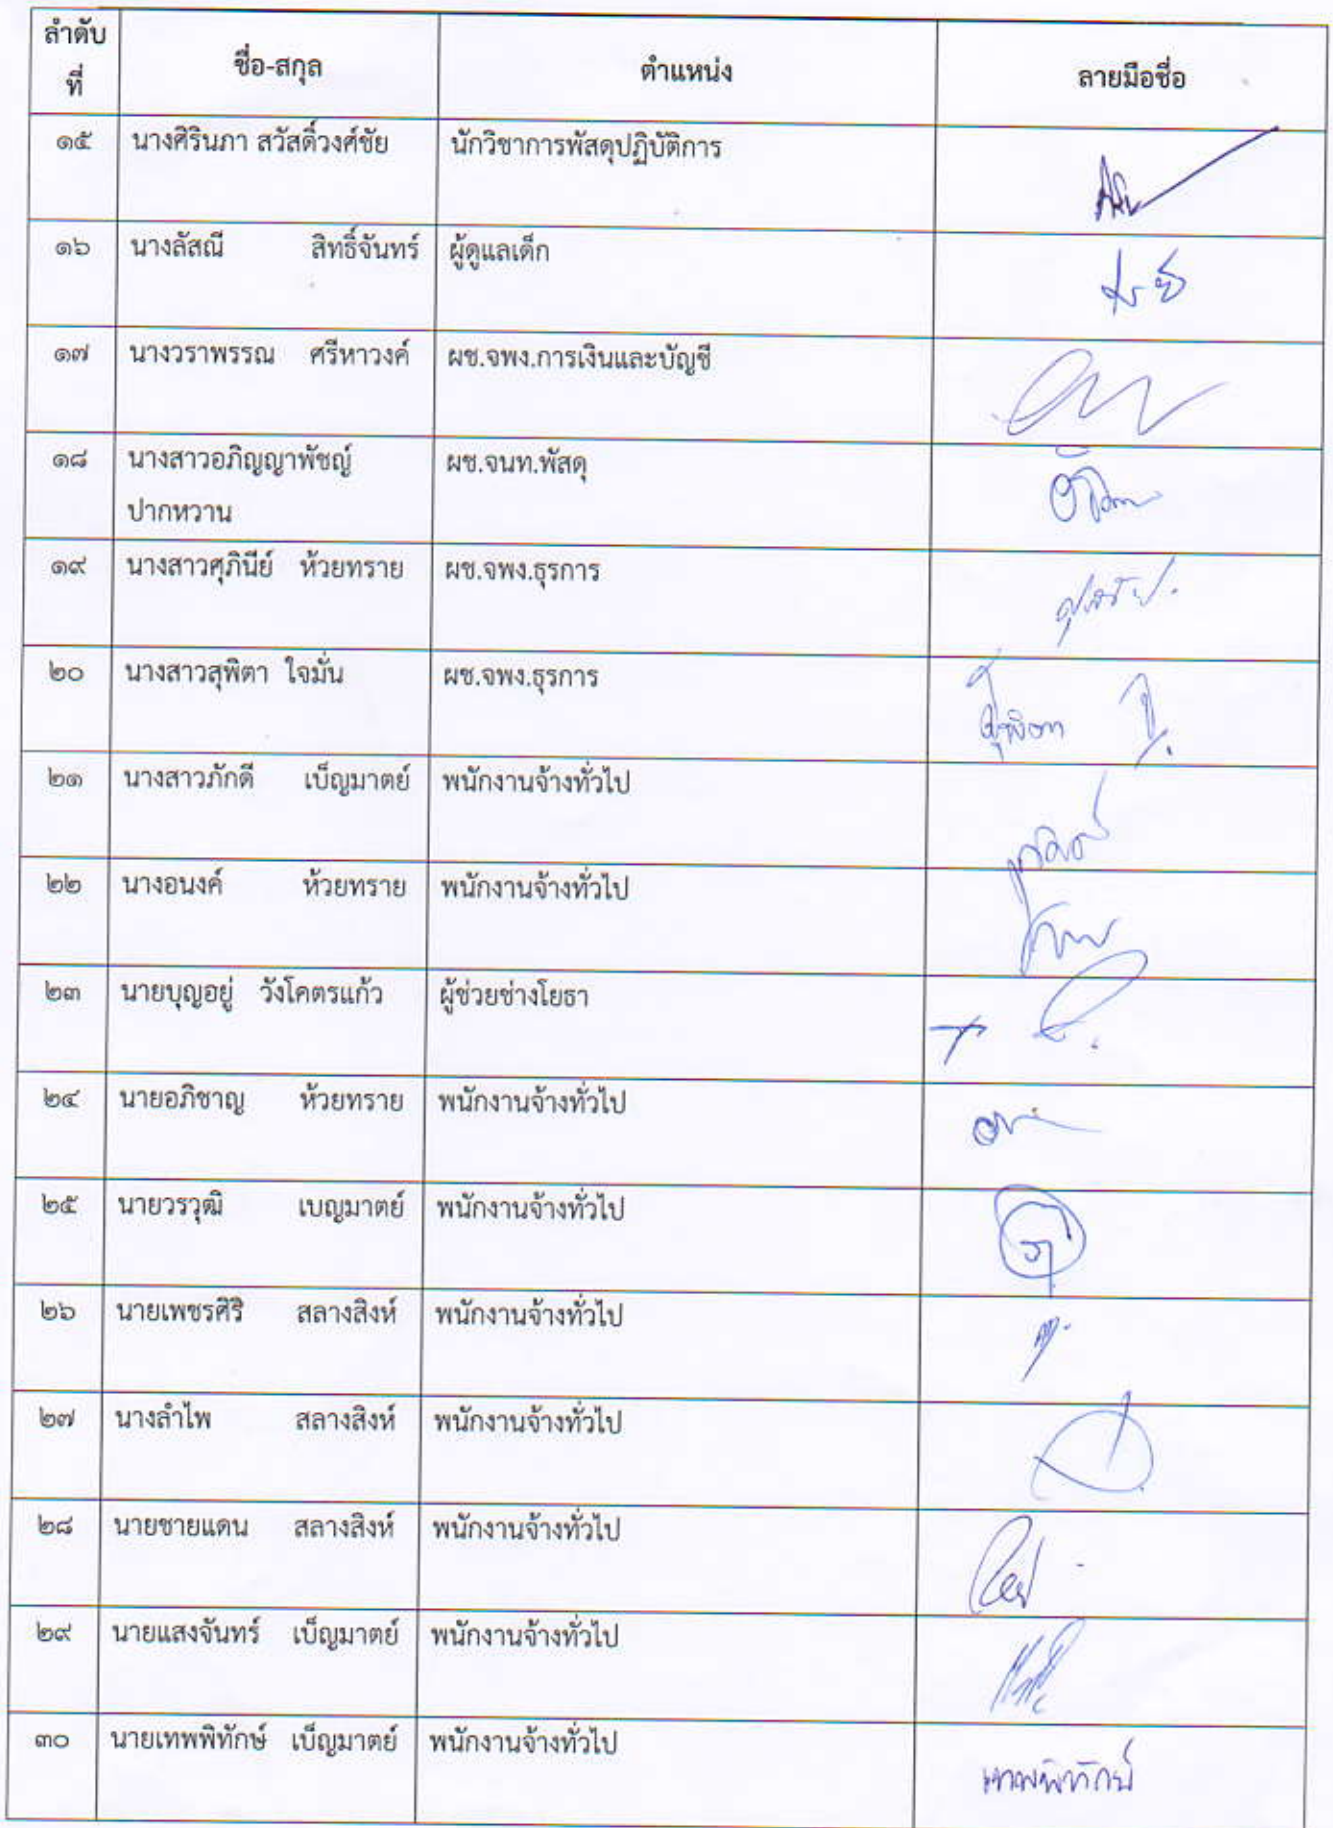 ลำดับ
ที่
ชื่อ-สกุล
ตำแหน่ง
ลายมือชื่อ
๑๕ นางศิรินภา สวัสดิ์วงศ์ชัย นักวิชาการพัสดุปฏิบัติการ
๑๖ นางลัสณี สิทธิ์จันทร์ ผู้ดูแลเด็ก
๑๗ นางวราพรรณ ศรีหาวงค์ ผช.จพง.การเงินและบัญชี
๑๘ นางสาวอภิญญาพัชญ์ ผช.จนท.พัสดุ
ปากหวาน
๑๙ นางสาวศุภินีย์ ห้วยทราย ผช.จพง.ธุรการ
๒๐ นางสาวสุพิตา ใจมั่น ผช.จพง.ธุรการ สุพิตา
๒๑ นางสาวภักดี เบ็ญมาตย์ พนักงานจ้างทั่วไป
๒๒ นางอนงค์ ห้วยทราย พนักงานจ้างทั่วไป
๒๓ นายบุญอยู่ วังโคตรแก้ว ผู้ช่วยช่างโยธา
๒๔ นายอภิชาญ ห้วยทราย พนักงานจ้างทั่วไป
๒๕ นายวรวุฒิ เบญมาตย์ พนักงานจ้างทั่วไป
๒๖ นายเพชรศิริ สลางสิงห์ พนักงานจ้างทั่วไป
๒๗ นางลำไพ สลางสิงห์ พนักงานจ้างทั่วไป
๒๘ นายชายแดน สลางสิงห์ พนักงานจ้างทั่วไป
๒๙ นายแสงจันทร์ เบ็ญมาตย์ พนักงานจ้างทั่วไป
๓๐ นายเทพพิทักษ์ เบ็ญมาตย์ พนักงานจ้างทั่วไป เทพพิทักษ์